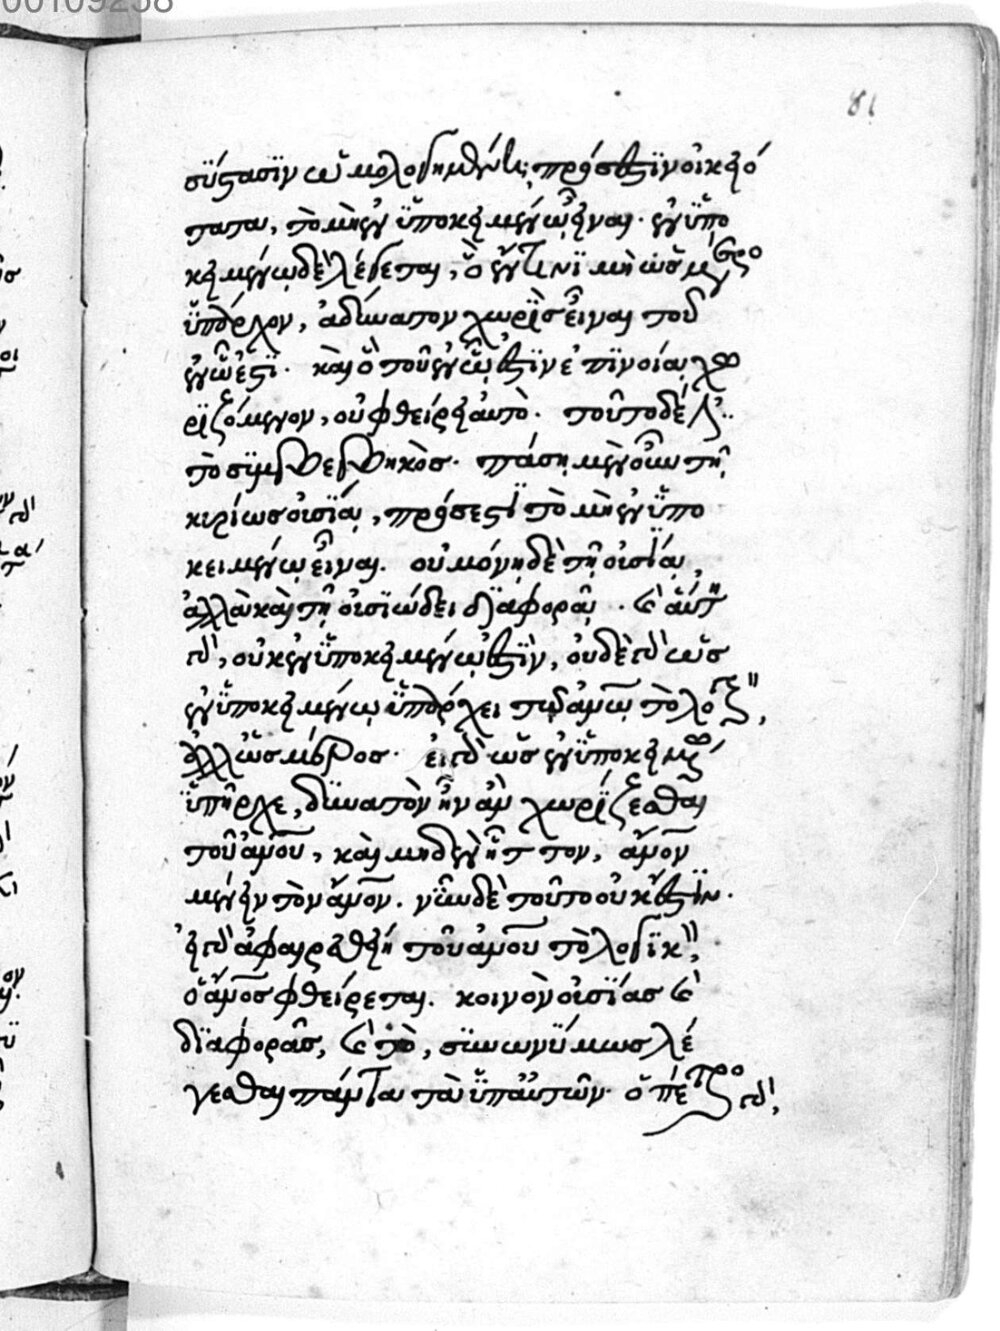 00109258
81
σύστασιν ὡμολογημένην; πρόσεστιν οἰκειό
τατα, τὸ μὴ ἐν ὑποκειμένῳ εἶναι. ἐν ὑπο
κειμένῳ δὲ λέγεται, ὃ ἔν τινι μὴ ὡς μέρο
ὑπάρχον, ἀδύνατον χωρὶς εἶναι τοῦ
ἐν ᾧ ἐστι. καὶ ὃ τοῦ ἐν ᾧ ἐστιν ἐπινοίᾳ χω
ριζόμενον, οὐ φθείρει αὐτὸ. τοῦτο δέ
τὸ συμβεβηκὸς. πάσῃ μὲν οὖν τῇ
κυρίως οὐσίᾳ, πρόσεστι τὸ μὴ ἐν ὑπο
κειμένῳ εἶναι. οὐ μόνῃ δὲ τῇ οὐσίᾳ
ἀλλὰ καὶ τῇ οὐσιώδει διαφορᾷ.
οὐκ ἐν ὑποκειμένῳ ἐστὶν, οὐδὲ ὡς
ἐν ὑποκειμένῳ ὑπάρχει τῷ ἀνῳ τὸ λο
ἀλλ' ὡς μέρος. εἰ ὡς ἐν ὑποκειμ
ὑπῆρχε, δυνατὸν ἦν ἂν χωρίζεσθαι
τοῦ ἀνου, καὶ μηδὲν ἧττον, ἄνον
μένειν τὸν ἄνον. νῦν δὲ τοῦτο οὐκ ἔστιν.
εἰ ἀφαιρεθείη τοῦ ἀνου τὸ λογικ,
ὁ ἄνος φθείρεται. κοινὸν οὐσίας καὶ
διαφορᾶς, καὶ τὸ, συνωνύμως λέ
γεσθαι πάντα τὰ ὑπ' αὐτῶν. ὁ πέτρο